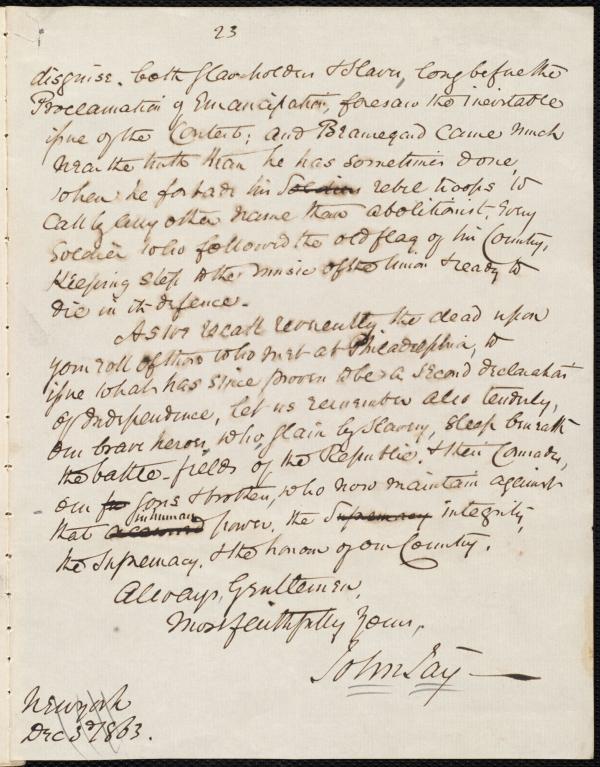 23
disguise. both slaveholders & slaves, long before the
Proclamation of Emancipation, foresaw the inevitable
issue of the Contest; and Beauregard came much
near the truth than he has sometimes done,
when he forbade his Soldiers rebel troops to
call by any other name than abolitionist, every
soldier who followed the old flag of his Country,
keeping step to the music of the Union & ready to
die in its defence.
As we recall reverently the dead upon
your roll of those who met at Philadelphia, to
issue what has since proven to be a second declaration
of Independence, let us remember also tenderly,
our brave heroes, who slain by slavery, sleep beneath
the battle-fields of the Republic. & their Comrades,
our sons & brothers, who now maintain against
inhuman
that accursed power, the Supremacy integrity,
the Supremacy, & the honour of our Country.
Always, Gentlemen,
Most faithfully Yours,
John Jay
New York
Dec 3d 1863.